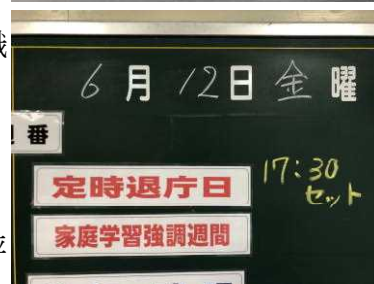 6月12日金曜
番
定時退庁日
17:30
セット
家庭学習強調週間